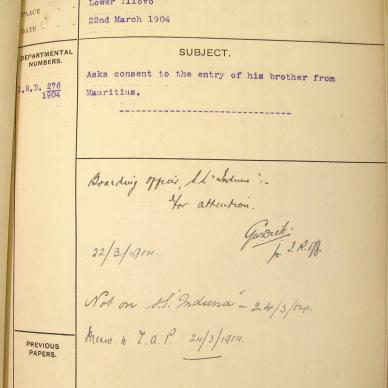 PLACE
Lower Illovo
DATE
22nd March 1904
DEPARTMENTAL
NUMBERS.
SUBJECT.
I.R.D. 276
1904
Asks consent to the entry of his brother from
Mauritius.
Boarding officer, S.S. "Induna":-
For attention.
p I.R.Off.
22/3/1904.
Not on S.S. "Induna" - 24/3/04.
Memo to I.A.P. 24/3/1904.
PREVIOUS
PAPERS.